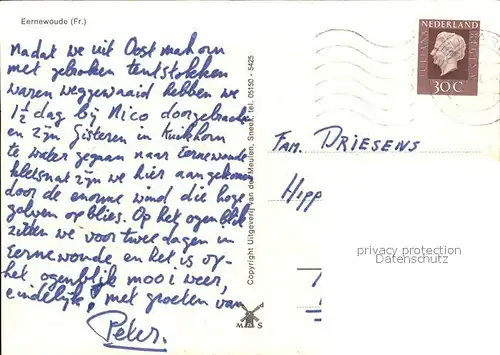 Eernewoude (Fr.)
Nadat we uit Oostmahorn
met gebroken tentstokken
waren weggewaaid hebben we
1½ dag bij Nico doorgebracht
en zijn gisteren in Kuikhorn
te water gegaan naar Eernewoude
kletsnat zijn we hier aangekomen
door de enorme wind die hoge
golven opblies. Op het ogenblik
zitten we voor twee dagen in
Eernewoude en het is op
het ogenblik mooi weer,
eindelijk, met groeten van
Peter.
Copyright Uitgeverij van der Meulen, Sneek, tel. 05150 - 5425
MAS
NEDERLAND
JULIANA
30C
FAM. DRIESENS
HIPP
privacy protection
Datenschutz